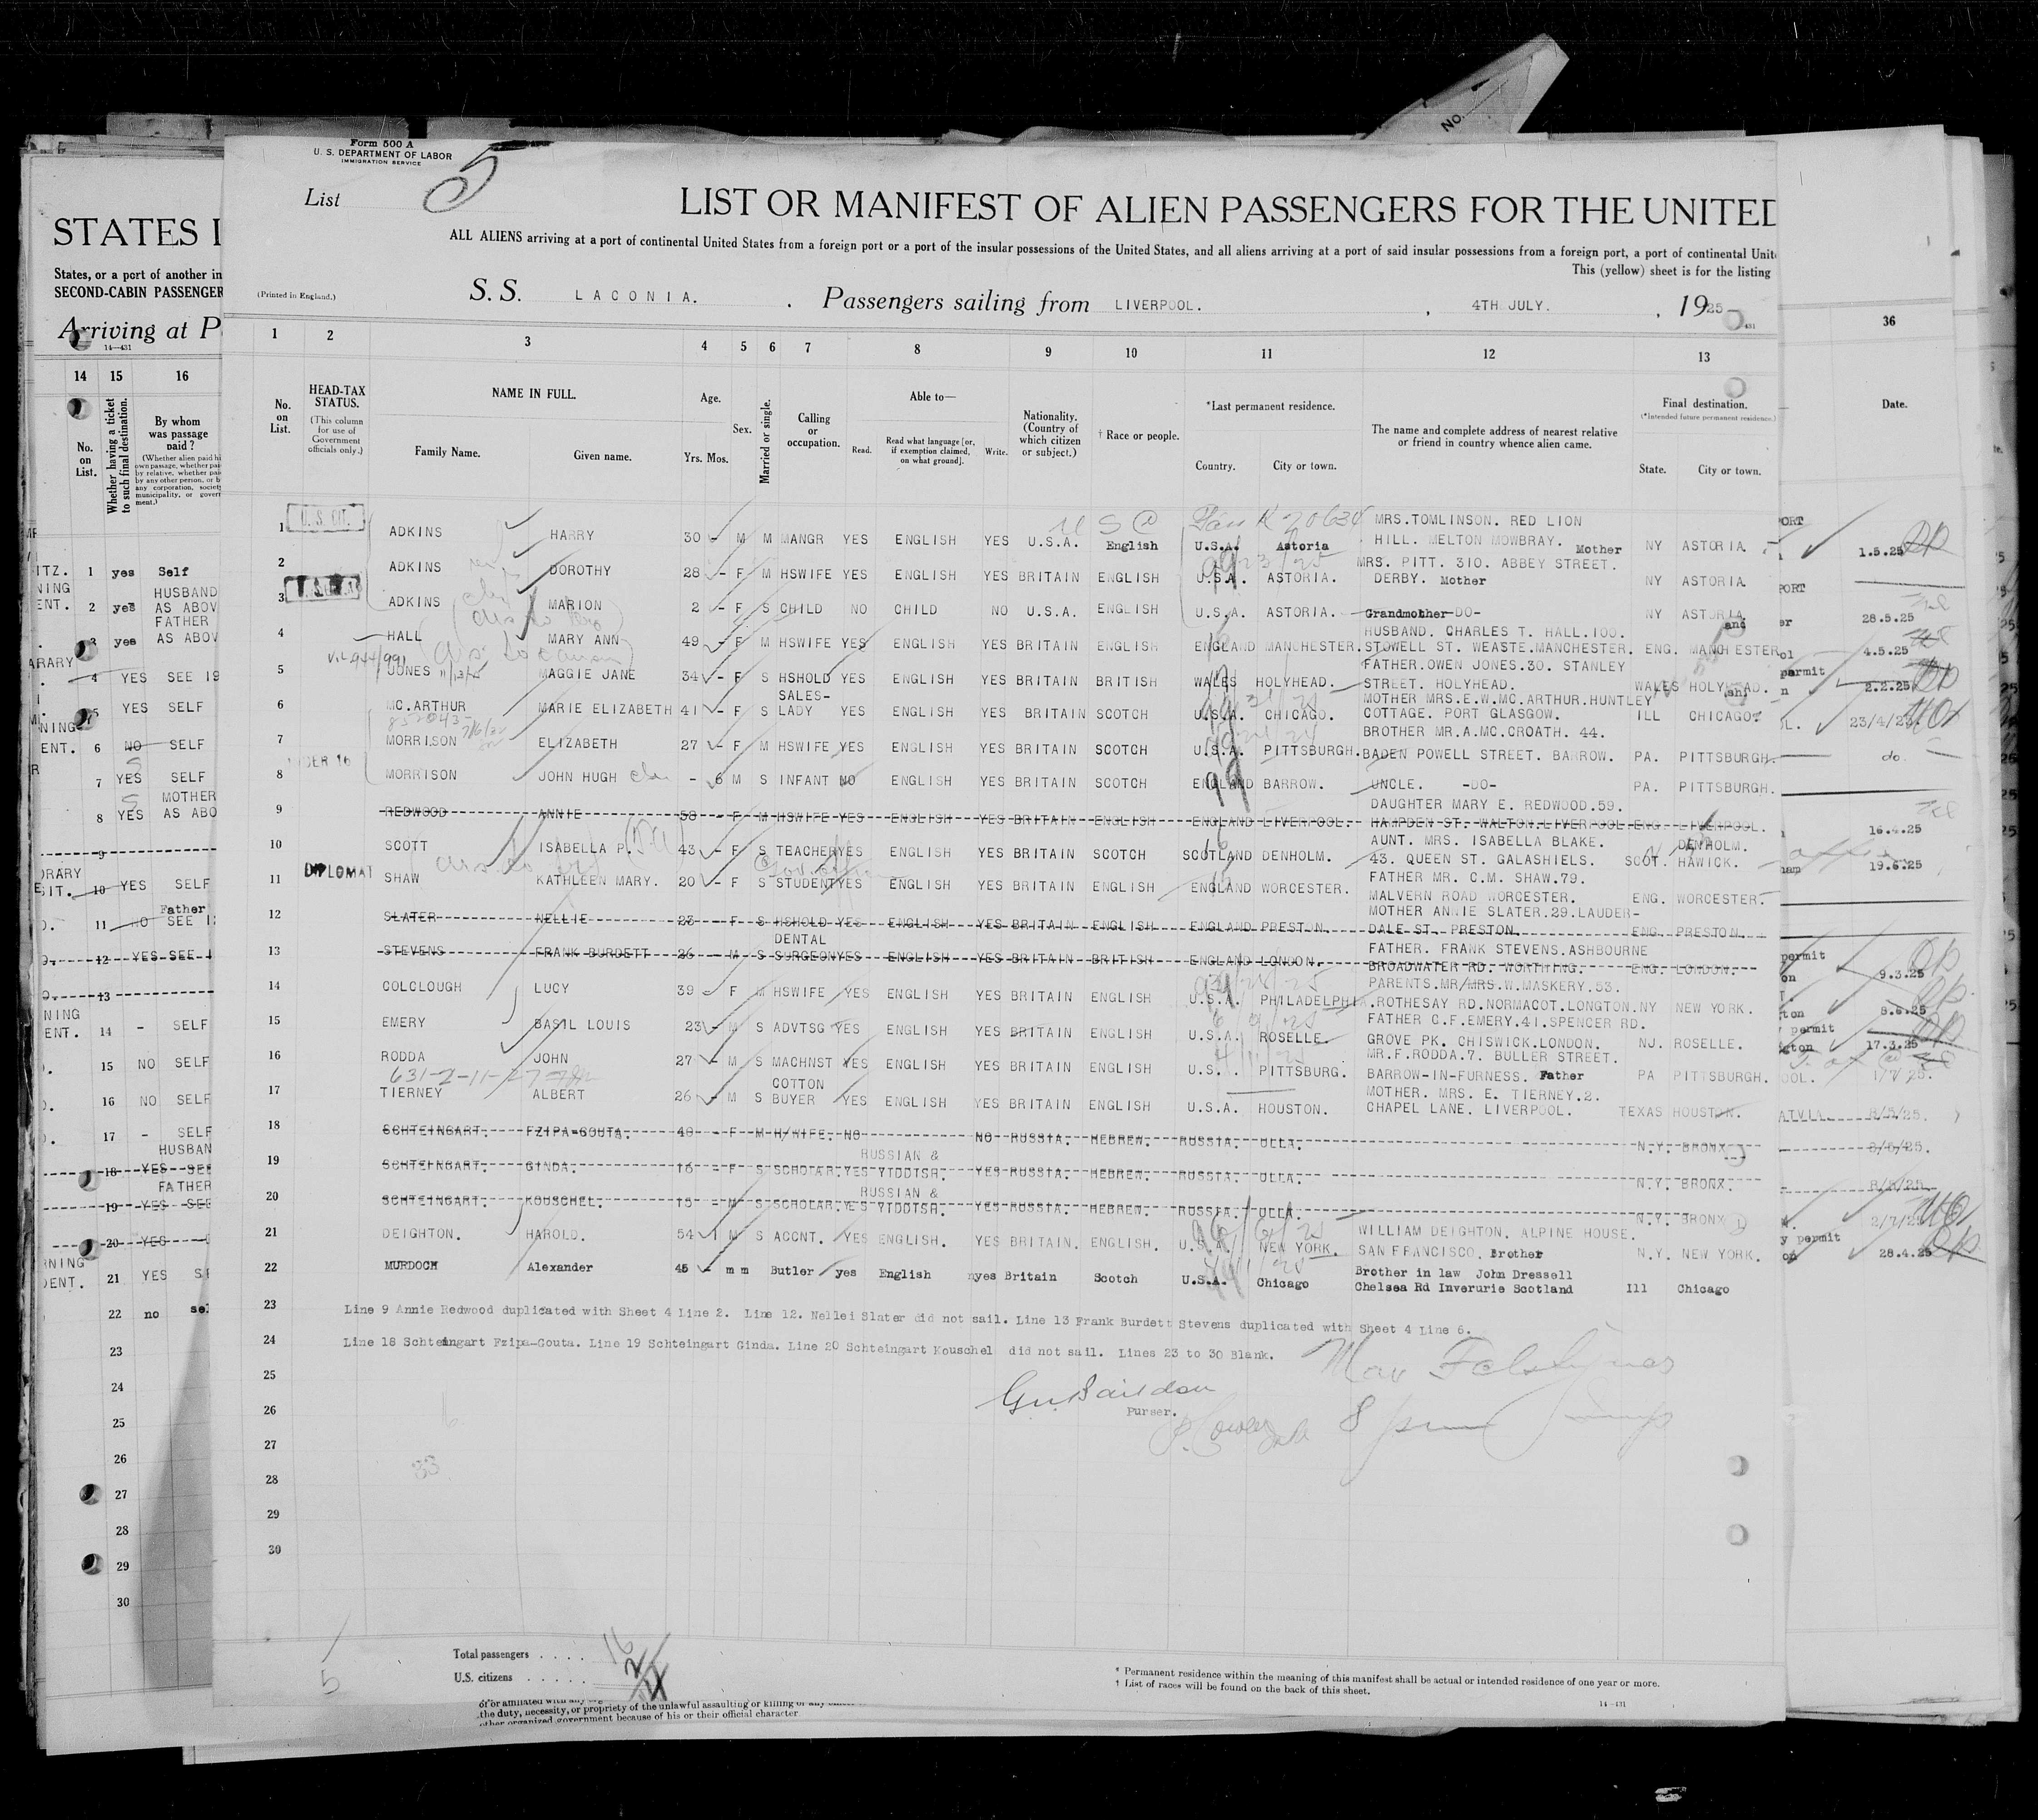 No.
Form 500 A
U. S. DEPARTMENT OF LABOR
IMMIGRATION SERVICE
List 5
LIST OR MANIFEST OF ALIEN PASSENGERS FOR THE UNITED
ALL ALIENS arriving at a port of continental United States from a foreign port or a port of the insular possessions of the United States, and all aliens arriving at a port of said insular possessions from a foreign port, a port of continental
This (yellow) sheet is for the listing
(Printed in England.)
S. S. LACONIA. Passengers sailing from LIVERPOOL. , 4TH JULY. , 1925
1 2 3 4 5 6 7 8 9 10 11 12 13
No. on List.
HEAD-TAX STATUS.
(This column for use of Government officials only.)
NAME IN FULL.
Family Name. Given name.
Age.
Yrs. Mos.
Sex.
Married or single.
Calling or occupation.
Able to—
Read. Read what language [or, if exemption claimed, on what ground]. Write.
Nationality. (Country of which citizen or subject.)
† Race or people.
*Last permanent residence.
Country. City or town.
The name and complete address of nearest relative or friend in country whence alien came.
Final destination.
(*Intended future permanent residence.)
State. City or town.
1 U. S. CIT. ADKINS HARRY 30 - M M MANGR YES ENGLISH YES U.S.A. English U.S.A. Astoria MRS.TOMLINSON. RED LION HILL. MELTON MOWBRAY. Mother NY ASTORIA.
2 ADKINS DOROTHY 28 - F M HSWIFE YES ENGLISH YES BRITAIN ENGLISH U.S.A. ASTORIA. MRS. PITT. 310. ABBEY STREET. DERBY. Mother NY ASTORIA
3 ADKINS MARION 2 - F S CHILD NO CHILD NO U.S.A. ENGLISH U.S.A. ASTORIA. Grandmother -DO- NY ASTORIA
4 HALL MARY ANN 49 - F M HSWIFE YES ENGLISH YES BRITAIN ENGLISH ENGLAND MANCHESTER. HUSBAND. CHARLES T. HALL.100. STOWELL ST. WEASTE.MANCHESTER. ENG. MANCHESTER
5 JONES MAGGIE JANE 34 - F S HSHOLD YES ENGLISH YES BRITAIN BRITISH WALES HOLYHEAD. FATHER.OWEN JONES.30. STANLEY STREET. HOLYHEAD. WALES HOLYHEAD.
6 MC.ARTHUR MARIE ELIZABETH 41 - F S SALES-LADY YES ENGLISH YES BRITAIN SCOTCH U.S.A. CHICAGO. MOTHER MRS.E.W.MC.ARTHUR.HUNTLEY COTTAGE. PORT GLASGOW. ILL CHICAGO.
7 MORRISON ELIZABETH 27 - F M HSWIFE YES ENGLISH YES BRITAIN SCOTCH U.S.A. PITTSBURGH. BROTHER MR.A.MC.CROATH. 44. BADEN POWELL STREET. BARROW. PA. PITTSBURGH.
8 UNDER 16 MORRISON JOHN HUGH - 6 M S INFANT NO ENGLISH YES BRITAIN SCOTCH ENGLAND BARROW. UNCLE. -DO- PA. PITTSBURGH.
9 REDWOOD ANNIE 58 - F M HSWIFE YES ENGLISH YES BRITAIN ENGLISH ENGLAND LIVERPOOL. DAUGHTER MARY E. REDWOOD.59. HAMPDEN ST. WALTON.LIVERPOOL ENG LIVERPOOL.
10 SCOTT ISABELLA P. 43 - F S TEACHER YES ENGLISH YES BRITAIN SCOTCH SCOTLAND DENHOLM. AUNT. MRS. ISABELLA BLAKE. 43. QUEEN ST. GALASHIELS. SCOT. DENHOLM. HAWICK.
11 DIPLOMAT SHAW KATHLEEN MARY. 20 - F S STUDENT YES ENGLISH YES BRITAIN ENGLISH ENGLAND WORCESTER. FATHER MR. C.M. SHAW.79. MALVERN ROAD WORCESTER. ENG. WORCESTER.
12 SLATER NELLIE 23 - F S HSHOLD YES ENGLISH YES BRITAIN ENGLISH ENGLAND PRESTON MOTHER ANNIE SLATER.29.LAUDER-DALE ST. PRESTON ENG. PRESTON.
13 STEVENS FRANK BURDETT 26 - M S DENTAL SURGEON YES ENGLISH YES BRITAIN BRITISH ENGLAND LONDON. FATHER. FRANK STEVENS.ASHBOURNE BROADWATER RD. WORTHING. ENG. LONDON.
14 COLCLOUGH LUCY 39 - F M HSWIFE YES ENGLISH YES BRITAIN ENGLISH U.S.A. PHILADELPHIA. PARENTS.MR/MRS.W.MASKERY.53. ROTHESAY RD.NORMACOT.LONGTON. NY NEW YORK.
15 EMERY BASIL LOUIS 23 - M S ADVTSG YES ENGLISH YES BRITAIN ENGLISH U.S.A. ROSELLE. FATHER C.F.EMERY.41.SPENCER RD. GROVE PK. CHISWICK.LONDON. NJ. ROSELLE.
16 RODDA JOHN 27 - M S MACHNST YES ENGLISH YES BRITAIN ENGLISH U.S. . PITTSBURG. MR.F.RODDA.7. BULLER STREET. BARROW-IN-FURNESS. Father PA PITTSBURGH.
17 TIERNEY ALBERT 26 - M S COTTON BUYER YES ENGLISH YES BRITAIN ENGLISH U.S.A. HOUSTON. MOTHER. MRS. E. TIERNEY.2. CHAPEL LANE. LIVERPOOL. TEXAS HOUSTON.
18 SCHTEINGART. FZIPA-GOUTA. 49 - F M H/WIFE. NO NO RUSSIA. HEBREW. RUSSIA. ULLA. N.Y. BRONX
19 SCHTEINGART. GINDA. 16 - F S SCHOLAR. YES RUSSIAN & YIDDISH. YES RUSSIA. HEBREW. RUSSIA. ULLA. N.Y. BRONX.
20 SCHTEINGART. KOUSCHEL. 15 - M S SCHOLAR. YES RUSSIAN & YIDDISH. YES RUSSIA. HEBREW. RUSSIA. ULLA. N.Y. BRONX
21 DEIGHTON. HAROLD. 54 M S ACCNT. YES ENGLISH. YES BRITAIN. ENGLISH. U.S.A. NEW YORK. WILLIAM DEIGHTON, ALPINE HOUSE. SAN FRANCISCO. Brother N.Y. NEW YORK.
22 MURDOCH Alexander 45 - m m Butler yes English yes Britain Scotch U.S.A. Chicago Brother in law John Dressell Chelsea Rd Inverurie Scotland Ill Chicago
23 Line 9 Annie Redwood duplicated with Sheet 4 Line 2. Line 12. Nellei Slater did not sail. Line 13 Frank Burdett Stevens duplicated with Sheet 4 Line 6.
24 Line 18 Schteingart Fzipa-Gouta. Line 19 Schteingart Ginda. Line 20 Schteingart Kouschel did not sail. Lines 23 to 30 Blank.
25
26 Purser.
27
28
29
30
Total passengers . . . .
U.S. citizens . . . . .
* Permanent residence within the meaning of this manifest shall be actual or intended residence of one year or more.
† List of races will be found on the back of this sheet.
14—431
the duty, necessity, or propriety of the unlawful assaulting or killing of any
other organized government because of his or their official character
STATES
States, or a port of another
SECOND-CABIN PASSENGER
Arriving at
14—431
14 15 16
No. on List.
Whether having a ticket to such final destination.
By whom was passage paid?
1 yes Self
2 yes HUSBAND AS ABOV
3 yes FATHER AS ABOV
4 YES SEE 19
5 YES SELF
6 NO SELF
7 YES SELF
8 YES MOTHER AS ABO
9
10 YES SELF
11 NO Father SEE
12 YES SEE
13
14 - SELF
15 NO SELF
16 NO SELF
17 - SELF
18 YES HUSBAN SEE
19 YES FATHER SEE
20 YES
21 YES
22 no
23
24
25
26
27
28
29
30
36
Date.
1.5.25
28.5.25
4.5.25
2.2.25
23/4/25
do.
16.4.25
19.6.25
9.3.25
8.6.25
17.3.25
1/7/25.
8/5/25.
8/5/25.
8/5/25.
2/7/25
28.4.25